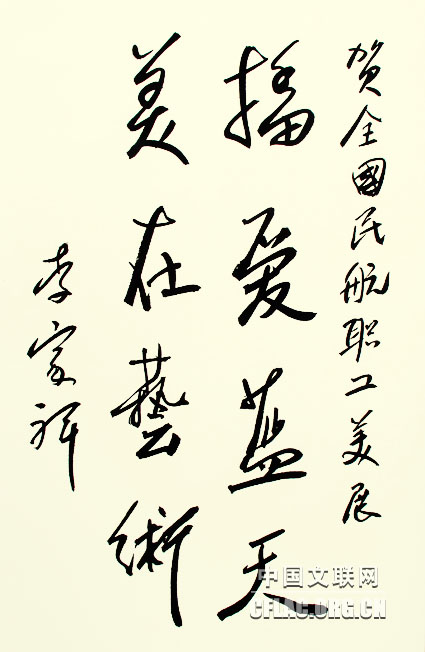 贺全國民航职工美展
播爱蓝天
美在藝術
李家祥
中国文联网
CFLAC.ORG.CN